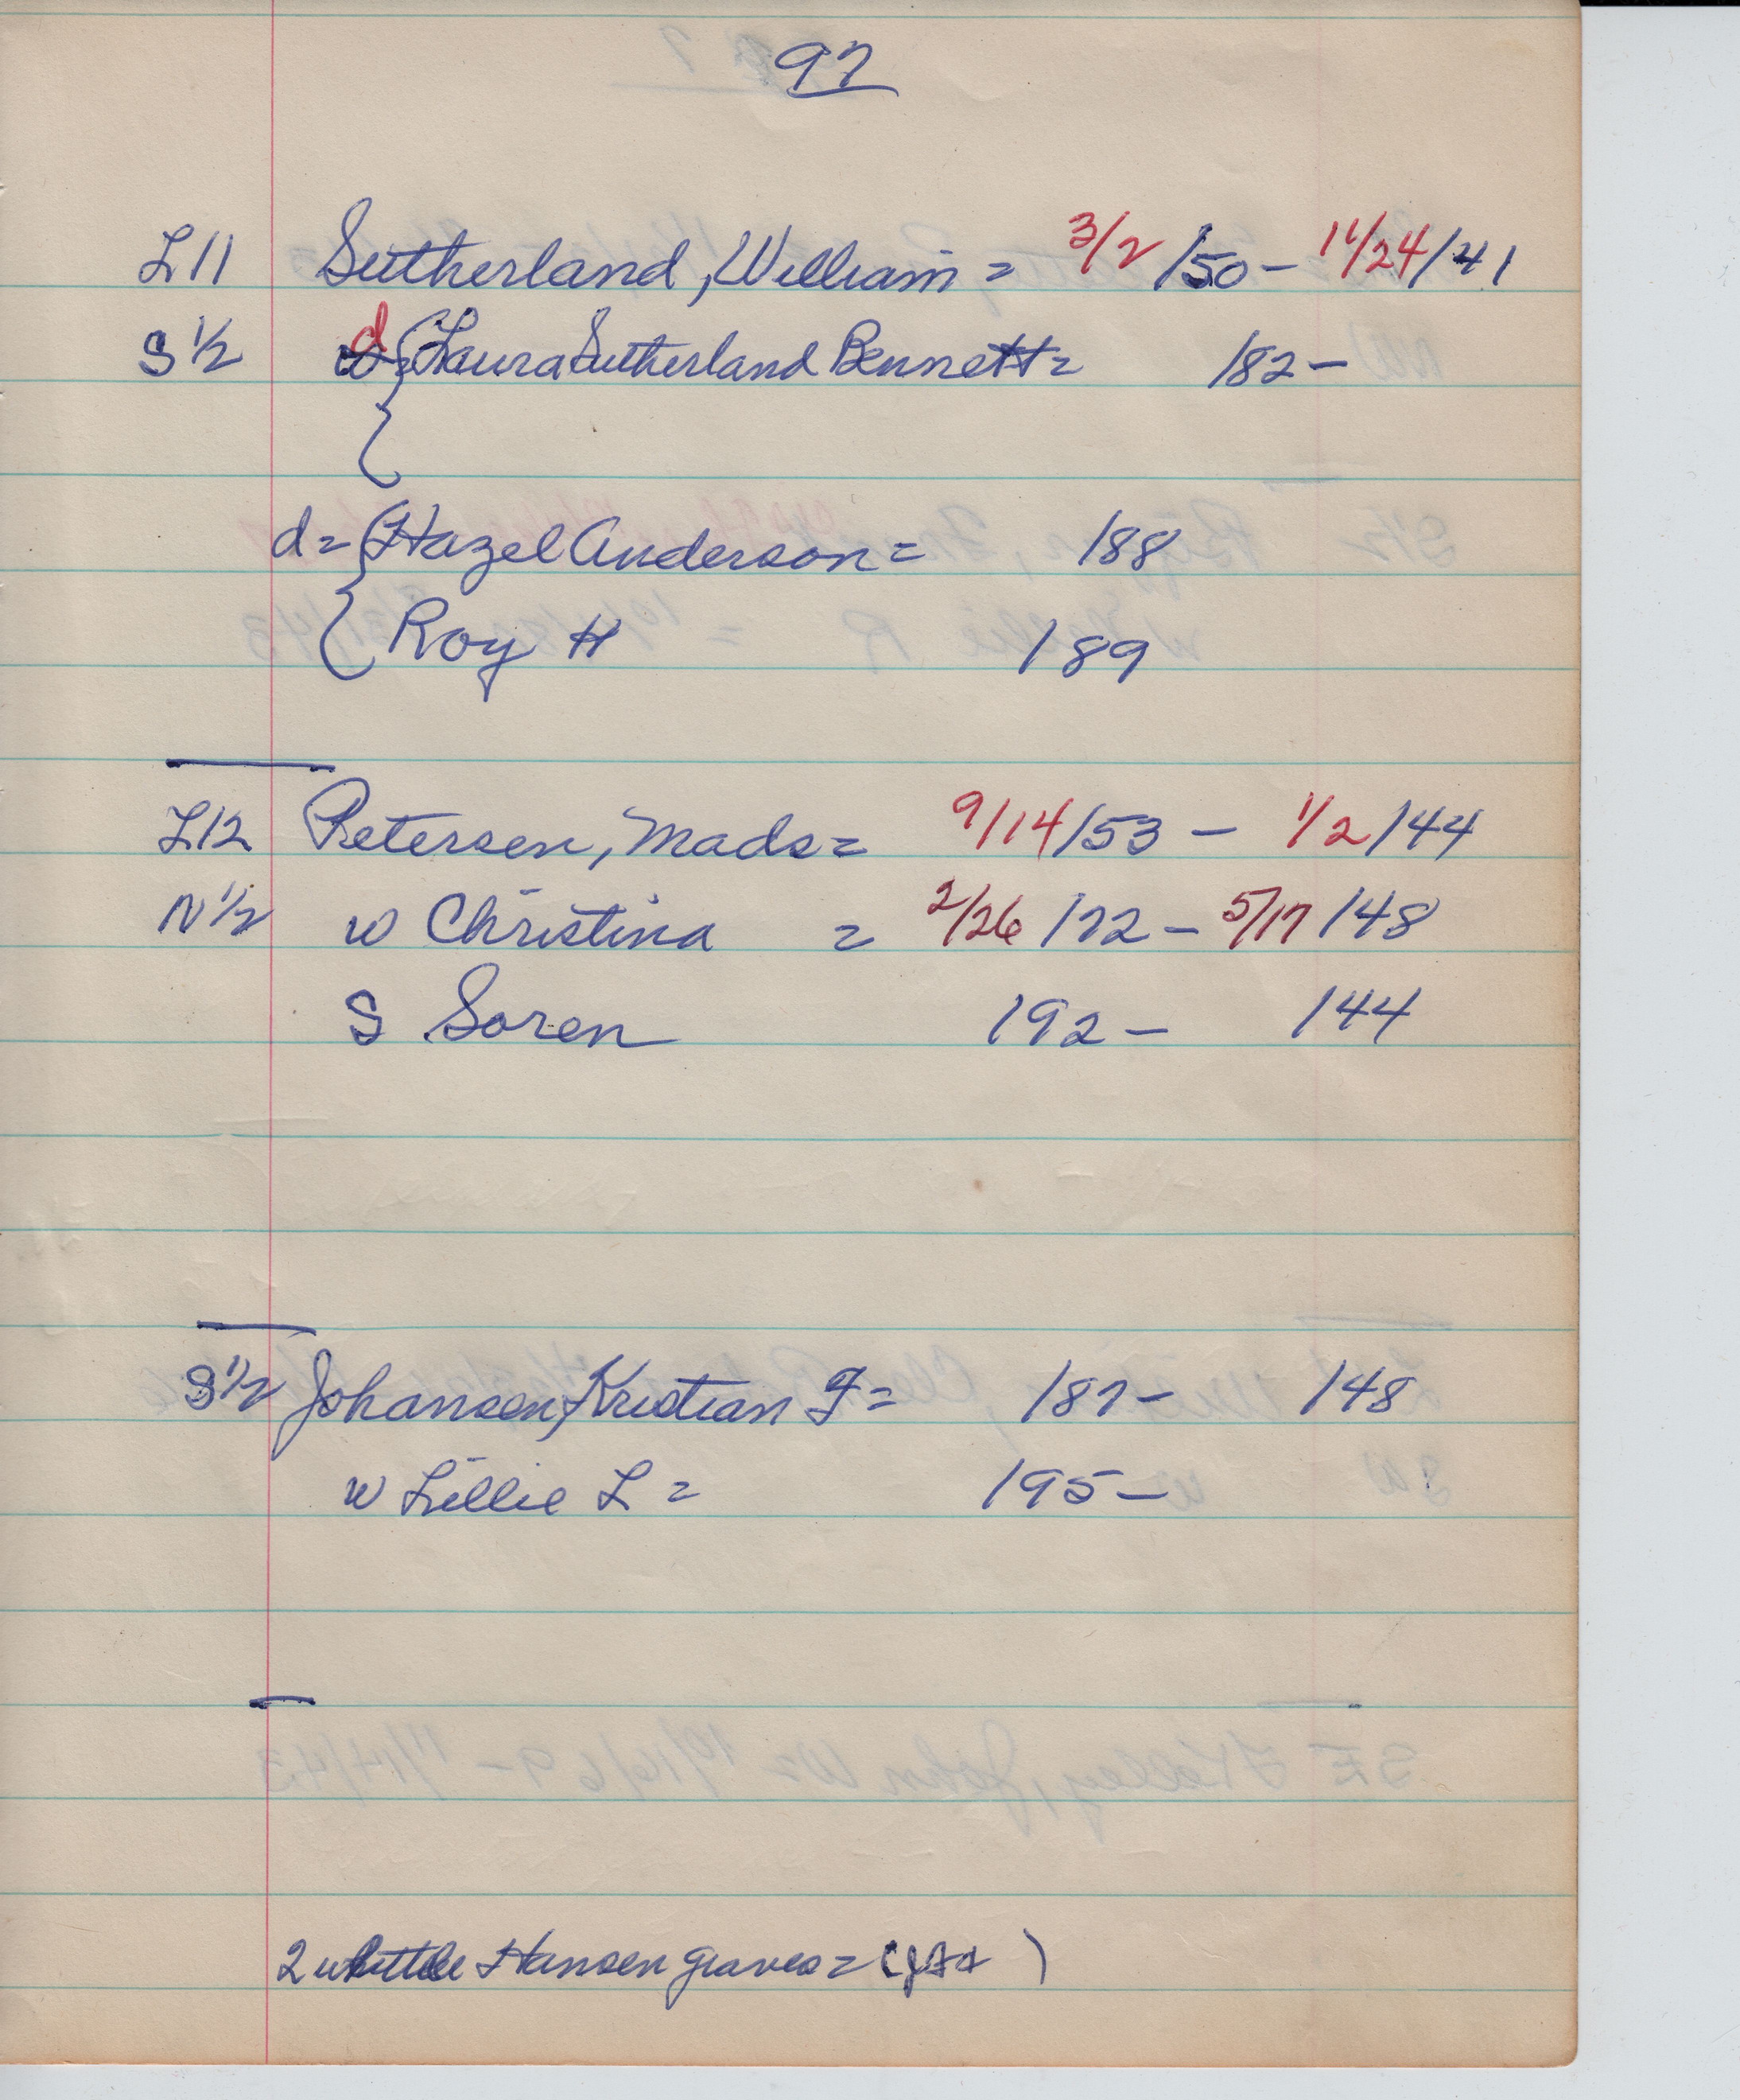 97
L11 Sutherland, William = 3/2/50 - 11/24/41
S 1/2 d Laura Sutherland Bennett = /82 -
d = Hazel Anderson = /88
Roy H /89
L12 Petersen, Mads = 9/14/53 - 1/2/44
N 1/2 w Christina = 2/26/72 - 5/17/48
S Soren /92 - /44
S 1/2 Johansen, Kristian J = /87 - /48
w Lillie L = /95 -
2 little Hansen graves =